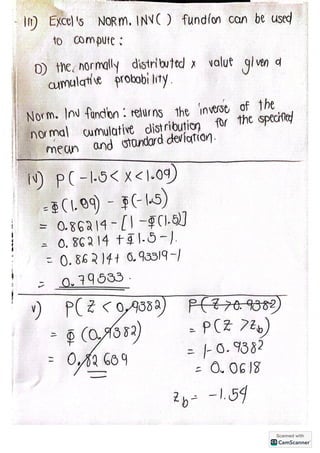 III) Excel's NORM. INV( ) fundion can be used
to compute :
D) the, normally distributed x value given a
cumulative probability.
Norm. Inv function : returns the inverse of the
normal cumulative distribution for the specified
mean and standard deviation.
IV) P( -1.5 < X < 1.09)
= Φ(1.09) - Φ(-1.5)
= 0.86214 - [1 - Φ(1.5)]
= 0.86214 + Φ1.5 - 1.
= 0.86214 + 0.93319 - 1
= 0.79533.
V) P(Z < 0.9382)
= Φ (0.9382)
= 0.82639
P(Z > 0.9382)
= P(Z > Zb)
= 1 - 0.9382
= 0.0618
Zb = -1.54
Scanned with
CS CamScanner